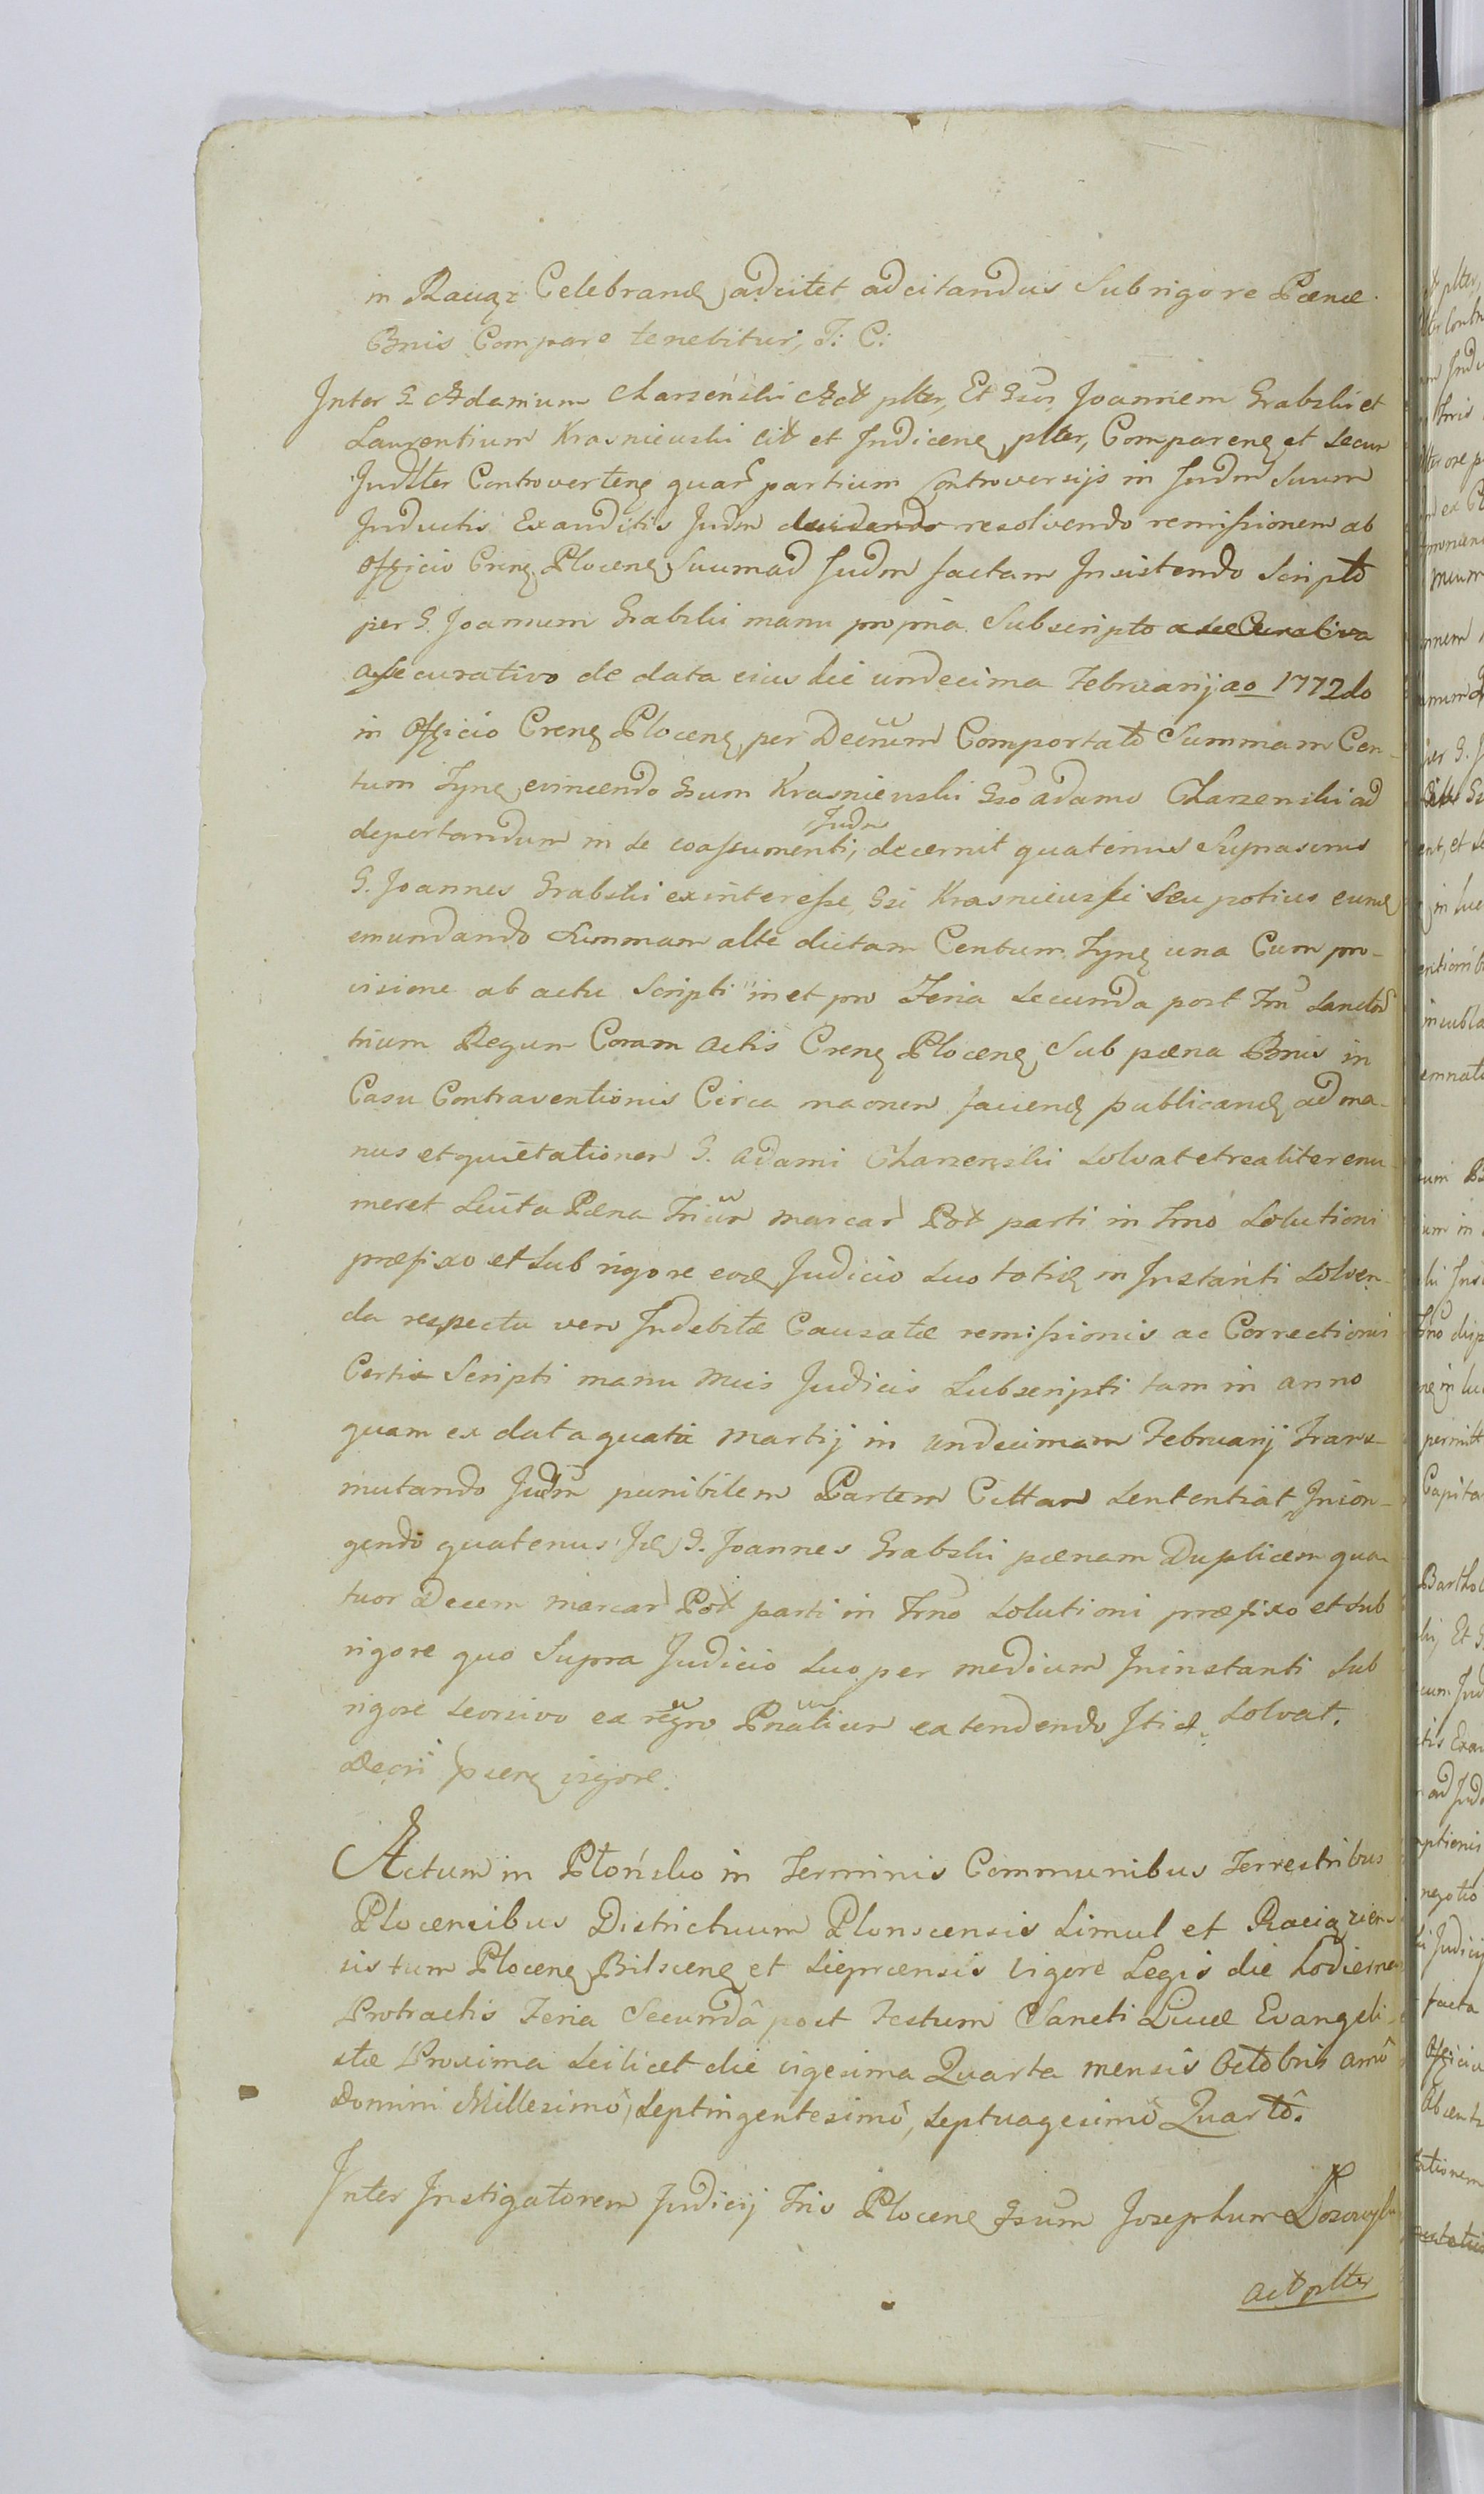 in Raciąz Celebrand adcitet adcitandus Sub rigore Pænæ
Bnis Compare tenebitur, T: C:
Inter G Adamum Charzeński Act plter, Et Gsos Joannem Grabski et
Laurentium Krasniewski cit et Indicene plter, Comparene et secum
Judlter Controvertene quar partium Controversijs in Judm Suum
Inductis Exauditis Judm decidendo resolvendo remissionem ab
Officio Crene Plocene Suum ad Judm factam Insistendo Scripto
per G. Joannem Grabski manu propria Subscripto
assecurativo de data eius die undecima Februarij ao 1772do
in Officio Crene Plocene per Decũm Comportato Summam Cen-
tum Tyne evincendo Gsum Krasniewski Gso Adamo Charzenski ad
deportandum in se coassumenti, Judm decernit quatenus Supnascrus
G. Joannes Grabski ex interesse Gsi Krasniewski seu potius eund
emundando Summam alte dictam Centum Tyne una Cum pro-
visione ab actu Scripti in et pro Feria secunda post Fm Sanctor
trium Regum Coram Actis Crene Plocene, Sub pæna Bnis in
Casu Contraventionis Circa naonem faciend publicand ad ma-
nus et quietationem G. Adami Charzenski solvat et realiter enu-
meret Luita Pæna Trium marcar Pol parti in Trno Solutioni
præfixo et sub rigore eod Judicio suo totid in Instanti Solven-
da respectu vero Indebitæ Causatæ remissionis ac Correctionis
Certis Scripti manu Meis Judicis Subscripti tam in anno
quam ex data quarta Martij in undecimam Februarij Trans-
mutando Judm punibilem Partem Cittam sententiat Inion-
gendo quatenus Id G. Joannes Grabski pænam Duplicem qua-
tuor Decem marcar Pol parti in Trno Solutioni præfixo et sub
rigore quo Supra Judicio suo per medium Ininstanti Sub
rigore seorsivo ex regro Pnatium extendendo Itid. Solvat.
Decri pscene vigore.
Actum in Płońsko in Terminis Communibus Terrestribus
Plocensibus Districtuum Plonscensis Simul et Raciązien-
sis tum Plocene Bilscene et Sieprcensis vigore Legis die hodierna
Protractis Feria Secundâ post Festum Sancti Lucæ Evangeli-
stæ Proxima Scilicet die vigesima Quarta mensis Octobris Anno
Domini Millesimô, Septingentesimô, Septuagesimô Quartô.
Inter Instigatorem Judicij Tris Plocene Gsum Josephum
Act plter